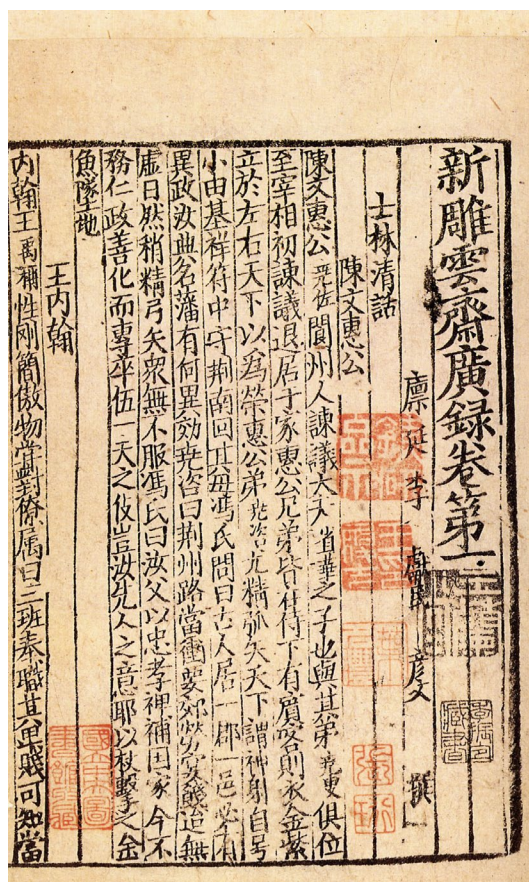 新雕雲齋廣錄卷第一
廪延李獻民彥文撰
士林清話
陳文惠公
陳文惠公堯佐閬州人諫議大夫省華之子也與其弟堯叟俱位
至宰相初諫議退居于家惠公兄弟皆侍下有賓客則衣金紫
立於左右天下以爲榮惠公弟堯咨尤精弧矢天下謂神射自号
小由基祥符中守荆南回其母馮氏問曰古人居一郡一邑必有
異政汝典名藩有何異効堯咨曰荆州路當衝要郊勞宴餞迨無
虛日然稍精弓矢衆無不服馮氏曰汝父以忠孝裨補国家今不
務仁政善化而專卒伍一夫之伎豈汝先人之意耶以杖擊之金
魚墜地
王内翰
内翰王禹偁性刚簡傲物嘗對僚属曰三班奉職其卑賤可知當
張珩